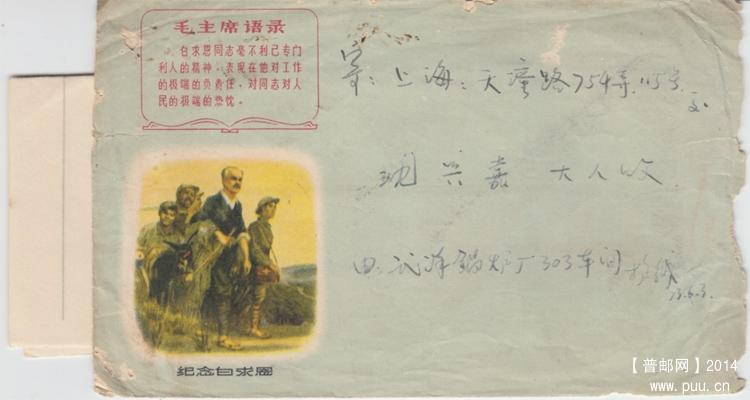 毛主席语录
白求恩同志毫不利己专门
利人的精神，表现在他对工作
的极端的负责任，对同志对人
民的极端的热忱。
纪念白求恩
寄：上海：天潼路754弄115号
交
沈兴嘉 大人收
由 武汉锅炉厂303车间
73.6.3.
【普邮网】2014
www.puu.cn